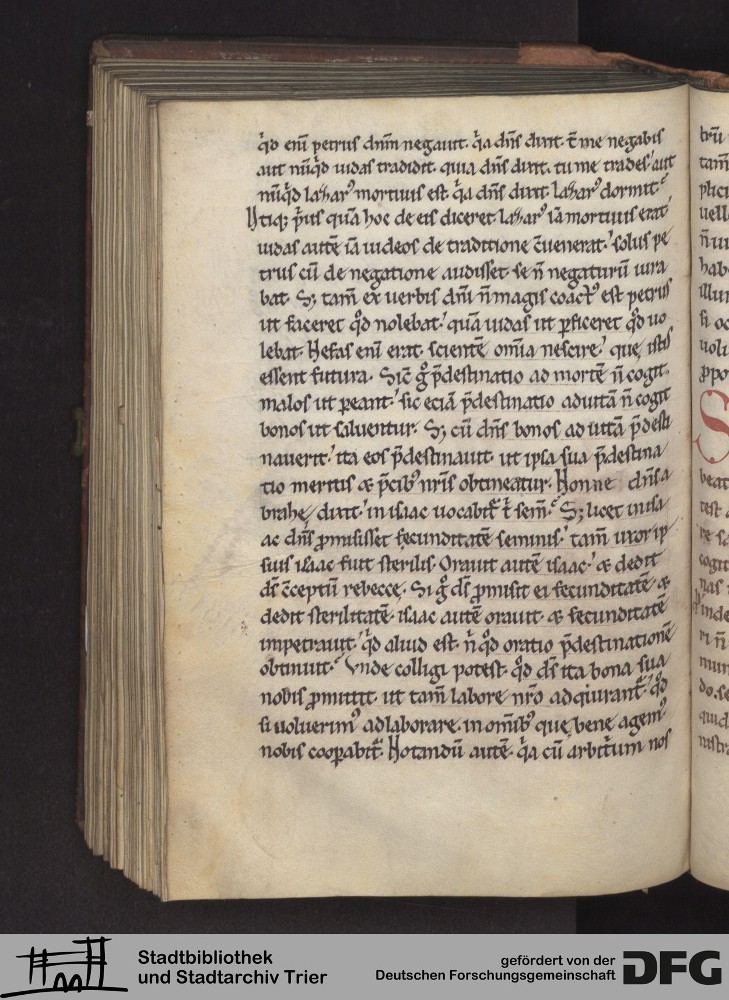 q̇d eni̅ petrus dn̅m negauit. q̇a dn̅s dixit. t̅ me negabis
aut nu̅q̇d iudas tradidit. quia dn̅s dixit. tu me trades! aut
nu̅q̇d lazar᾽ mortuus est. q̇a dn̅s dixit. lazar᾽ dormit.
Utiq; p̅us qua̅ hoc de eis diceret. lazar᾽ ia̅ mortuus erat!
iudas aute̅ ia̅ iudeos de traditione c̅uenerat! solus pe
trus cu̅ de negatione audisset. se n̅ negaturu̅ iura
bat. S; tam̅ ex uerbis dn̅i n̅ magis coact᾽ est petrus
ut faceret qd̊ nolebat! qua̅ iudas ut p̲ficeret qd̊ uo
lebat. Nefas eni̅ erat. sciente̅ om̅ia nescire! que istis
essent futura. Sic̅ g̊ p̅destinatio ad morte̅ n̅ cogit.
malos ut p̲eant! sic ecia̅ p̅destinatio ad uita̅ n̅ cogit
bonos ut saluentur. S; cu̅ dn̅s bonos ad uita̅ p̅desti
nauerit. ita eos p̅destinauit. ut ipsa sua p̅destina
tio meritis & p̅cib᾽ nr̅is obtineatur. Nonne dn̅s a
brahe, dixit. in isaac uocabit᷑ t̅ sem̅. S; licet in isa
ac dn̅s p̲misisset fecunditate̅ seminis! tam̅ uxor ip
sius isaac fuit sterilis. Orauit aute̅ isaac! & dedit
ds̅ c̅ceptu̅ rebecce. Si g̊ ds̅ p̲misit ei fecunditate̅. &
dedit sterilitate̅. isaac aute̅ orauit. & fecunditate̅
impetrauit! q̇d aliud est. n̅ qd̊ oratio p̅destinatione̅
obtinuit. Vnde colligi potest. qd̊ ds̅ ita bona sua
nobis p̲mittit. ut tam̅ labore nr̅o adquirant᷑. qd̊
si uoluerim᾽ adlaborare. in om̅ib᾽ que bene agem᾽
nobis coop̲abit᷑. Notandu̅ aute̅. q̇a cu̅ arbit̅um nos
Stadtbibliothek
und Stadtarchiv Trier
gefördert von der
Deutschen Forschungsgemeinschaft
DFG